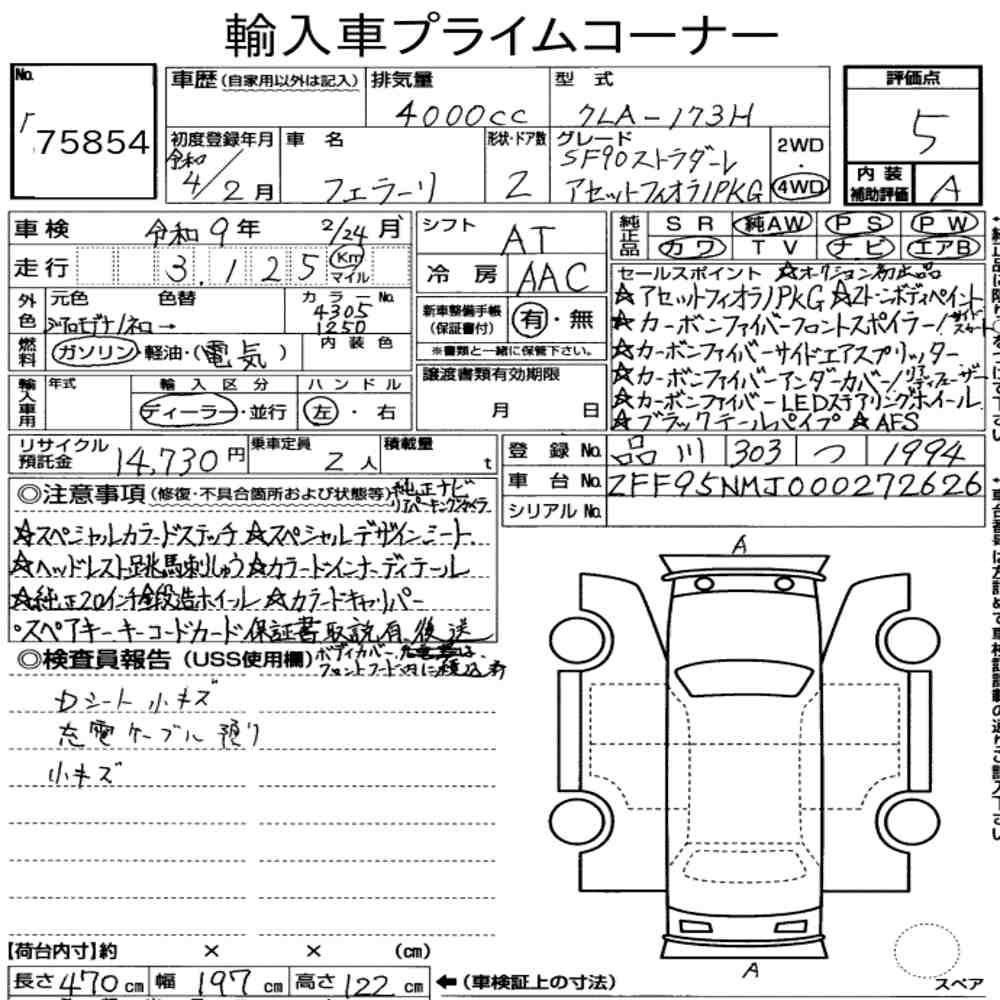 輸入車プライムコーナー
No. 75854
車歴(自家用以外は記入) 排気量 4000cc 型式 7LA-173H
評価点 5
初度登録年月 令和 4/2月 車名 フェラーリ 形状・ドア数 2 グレード SF90ストラダーレ アセットフィオラノPKG 2WD・4WD
内装補助評価 A
車検 令和9年 2/24月
走行 3,125 Km マイル
シフト AT
冷房 AAC
純正品 SR 純AW PS PW
カワ TV ナビ エアB
外色 元色 色替 カラーNo. 4305 1250
内装色
燃料 ガソリン・軽油・(電気)
新車整備手帳(保証書付) 有・無
※書類と一緒に保管下さい。
セールスポイント ☆オプション
☆アセットフィオラノPKG ☆2トーンボディペイント
☆カーボンファイバーフロントスポイラー/サイドスカート
☆カーボンファイバーサイドエアスプリッター
☆カーボンファイバーアンダーカバー/リアディフューザー
☆カーボンファイバーLEDステアリングホイール
☆ブラックテールパイプ ☆AFS
輸入車用 年式 輸入区分 ディーラー・並行 ハンドル 左・右
譲渡書類有効期限 月 日
リサイクル預託金 14,730円 乗車定員 2人 積載量 t
登録No. 品川 303 つ 1994
車台No. ZFF95NMJ000272626
シリアルNo.
◎注意事項(修復・不具合箇所および状態等) 純正ナビ リアパーキングカメラ
☆スペシャルカラードステッチ ☆スペシャルデザインシート
☆ヘッドレスト跳馬刺しゅう ☆カラードインナーディテール
☆純正20インチ鍛造ホイール ☆カラードキャリパー
・スペアキーキーコードカード保証書取説有.後送
◎検査員報告(USS使用欄) ボディカバー
フロントフード内に積込有
Dシート小キズ
充電ケーブル預り
小キズ
A
A
スペア
【荷台内寸】約 × × (cm)
長さ470cm 幅197cm 高さ122cm ←(車検証上の寸法)